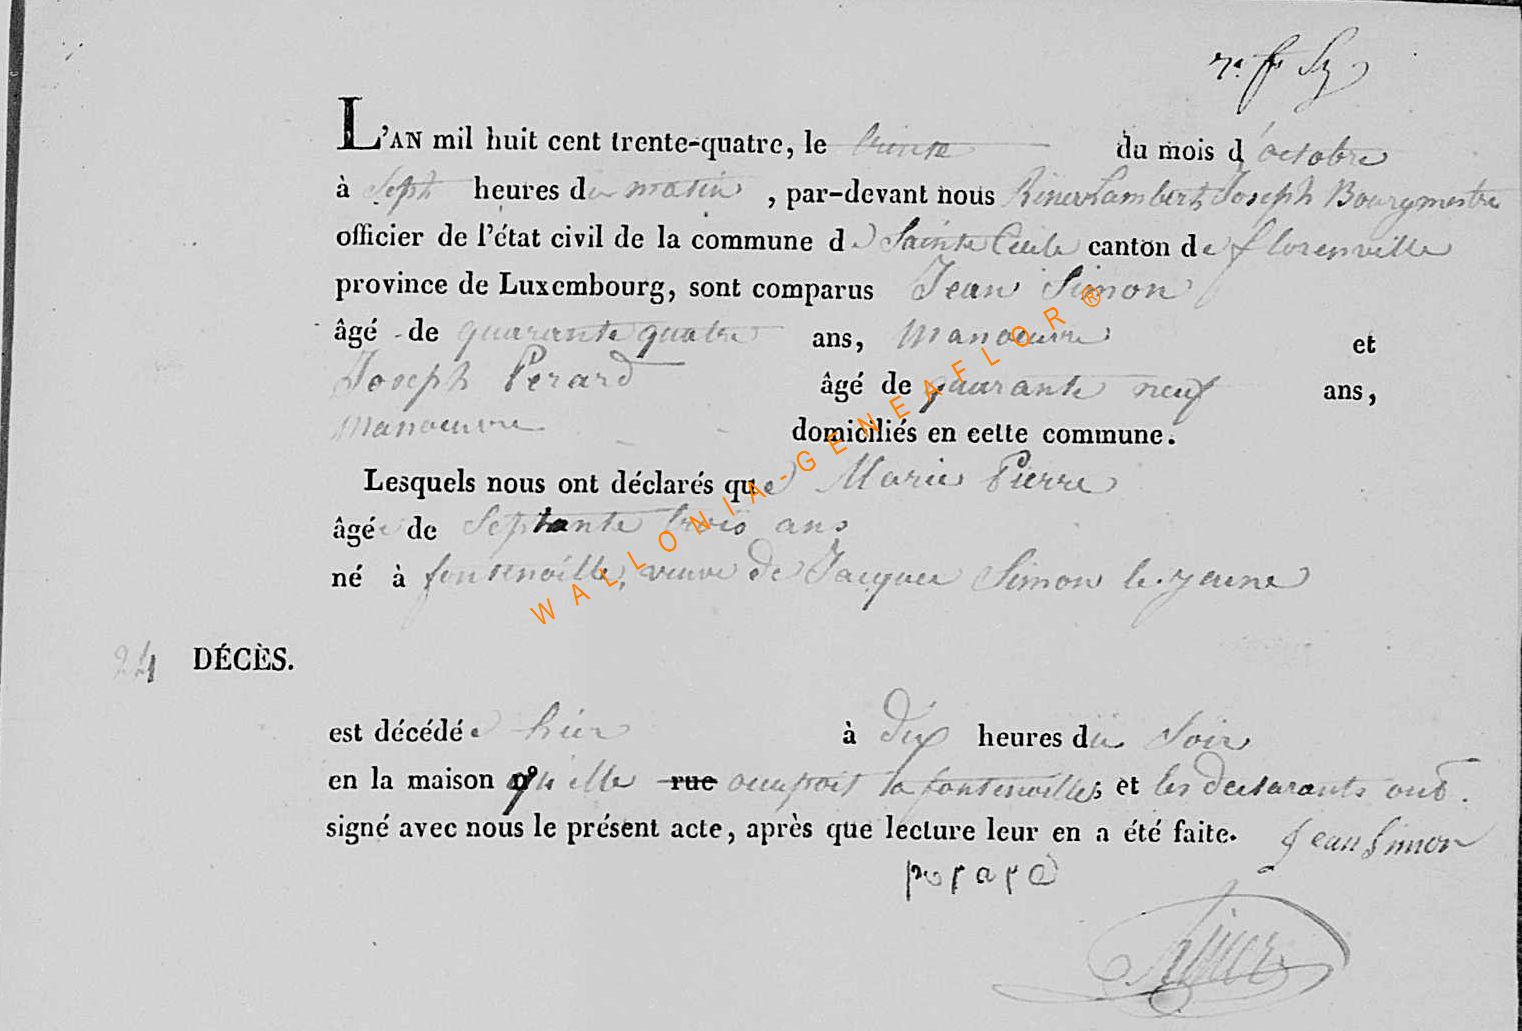 L'AN mil huit cent trente-quatre, le trente du mois d'octobre
à sept heures du matin, par-devant nous Riner Lambert Joseph Bourgmestre
officier de l'état civil de la commune de Sainte Cecile canton de florenville
province de Luxembourg, sont comparus Jean Simon
âgé de quarante quatre ans, Manoeuvre et
Joseph Perard âgé de quarante neuf ans,
manoeuvre domiciliés en cette commune.
Lesquels nous ont déclarés que Marie Pierre
âgée de Septante trois ans
né à fontenoille, veuve de Jacques Simon le jeune
24 DÉCÈS.
est décédée hier à dix heures du Soir
en la maison qu'elle rue occupoit la fontenoille; et les declarants ont
signé avec nous le présent acte, après que lecture leur en a été faite. Jean Simon
WALLONIA-GENEAFLOR ®